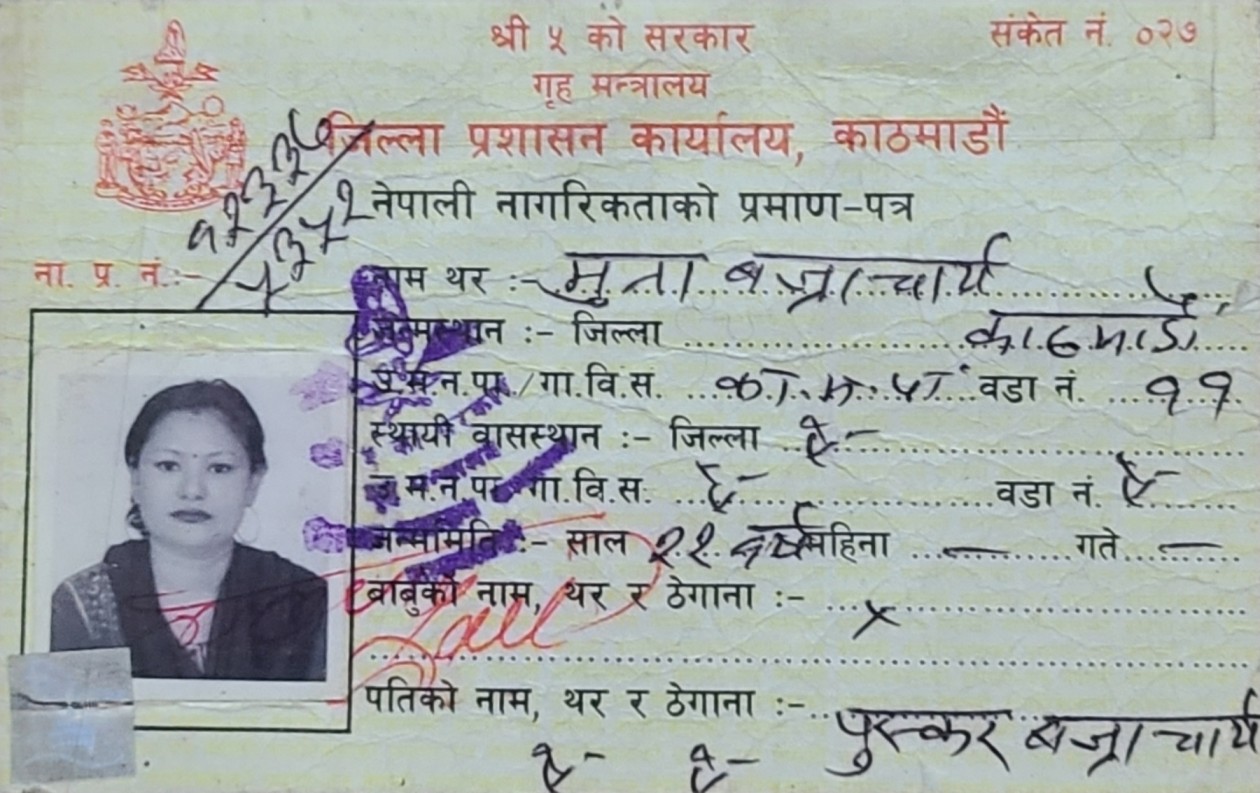 श्री ५ को सरकार
संकेत नं. ०२७
गृह मन्त्रालय
जिल्ला प्रशासन कार्यालय, काठमाडौं
नेपाली नागरिकताको प्रमाण-पत्र
ना. प्र. नं.:-
नाम थर :- मुना बज्राचार्य
जन्मस्थान :- जिल्ला काठमाडौं
उ.म.न.पा./गा.वि.स. का.म.पा. वडा नं. ११
स्थायी वासस्थान :- जिल्ला ऐ-
उ.म.न.पा./गा.वि.स. ऐ- वडा नं. ऐ-
जन्ममिति :- साल २२ वर्ष महिना — गते —
बाबुको नाम, थर र ठेगाना :- x
पतिको नाम, थर र ठेगाना :- पुस्कर बज्राचार्य
ऐ- ऐ-